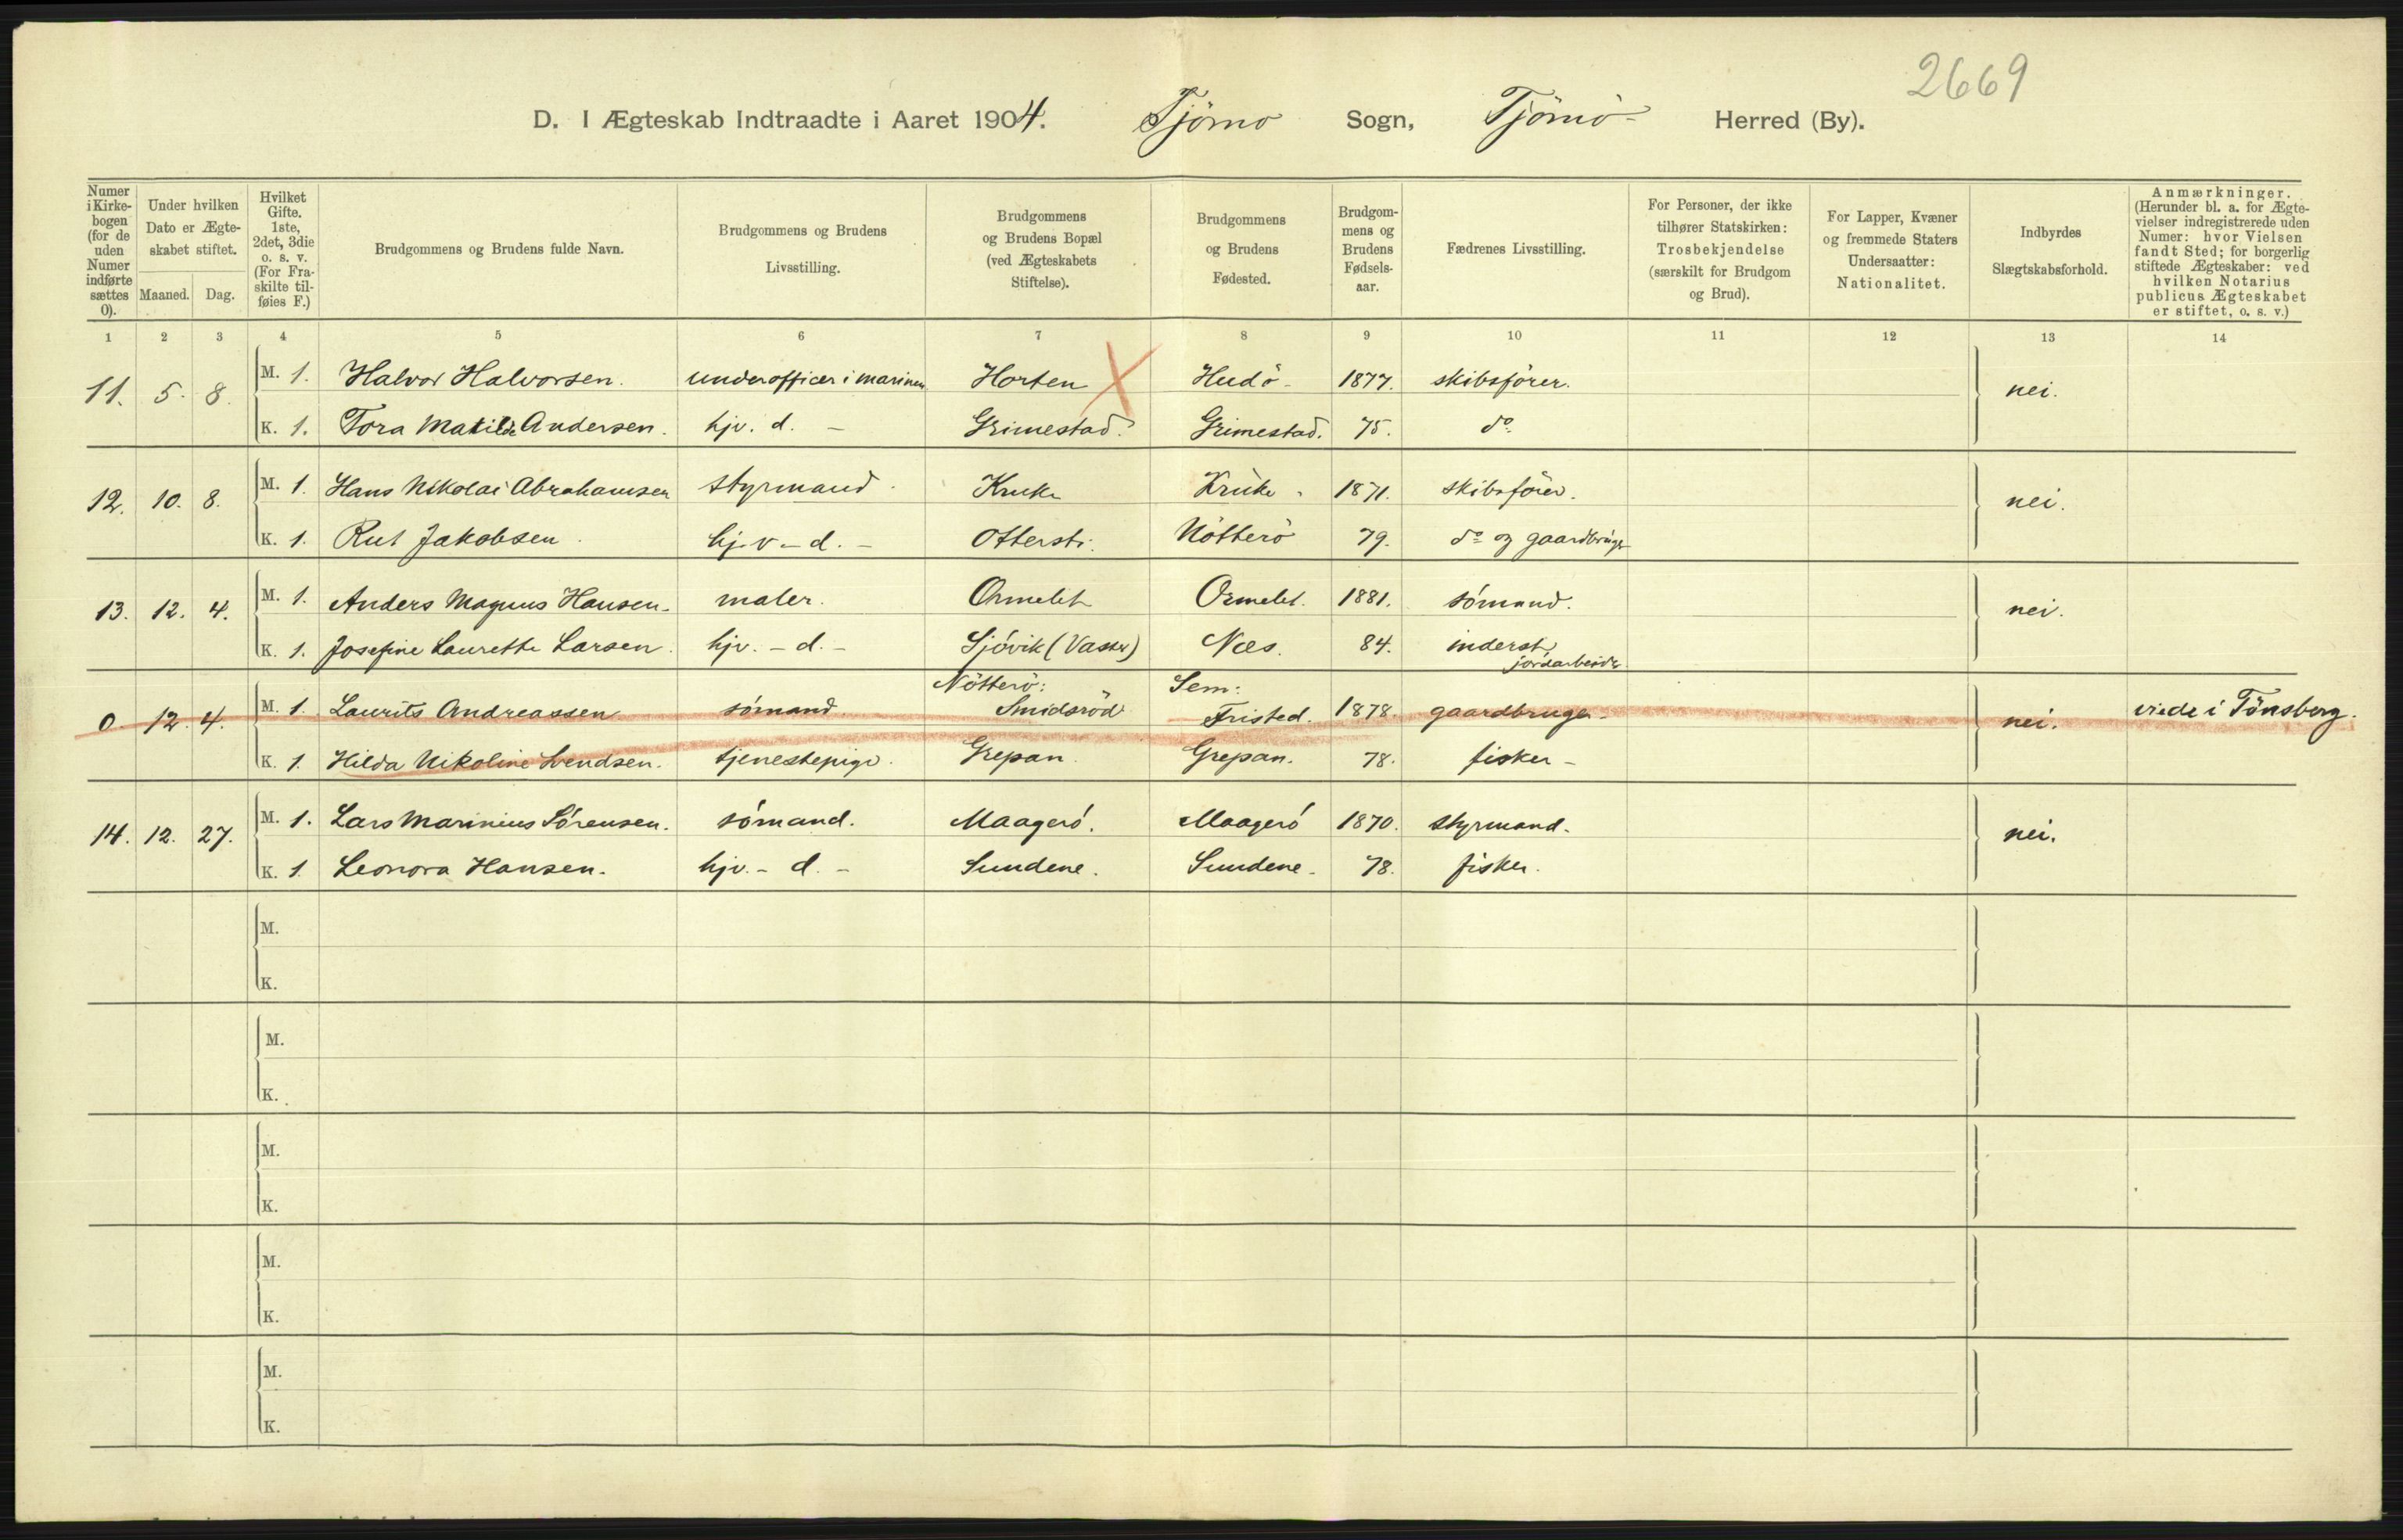 2669
D. I Ægteskab Indtraadte i Aaret 1904. Tjömö Sogn, Tjömö Herred (By).
Numer i Kirke-bogen (for de uden Numer indførte sættes 0).
Under hvilken Dato er Ægte-skabet stiftet.
Maaned. Dag.
Hvilket Gifte. 1ste, 2det, 3die o. s. v. (For Fra-skilte til-føies F.)
Brudgommens og Brudens fulde Navn.
Brudgommens og Brudens Livsstilling.
Brudgommens og Brudens Bopæl (ved Ægteskabets Stiftelse).
Brudgommens og Brudens Fødested.
Brudgom-mens og Brudens Fødsels-aar.
Fædrenes Livsstilling.
For Personer, der ikke tilhører Statskirken: Trosbekjendelse (særskilt for Brudgom og Brud).
For Lapper, Kvæner og fremmede Staters Undersaatter: Nationalitet.
Indbyrdes Slægtskabsforhold.
Anmærkninger. (Herunder bl. a. for Ægte-vielser indregistrerede uden Numer: hvor Vielsen fandt Sted; for borgerlig stiftede Ægteskaber: ved hvilken Notarius publicus Ægteskabet er stiftet, o. s. v.)
1 2 3 4 5 6 7 8 9 10 11 12 13 14
11. 5. 8. M. 1. Halvor Halvorsen. underofficer i marinen Horten Hudö 1877. skibsförer. nei.
K. 1. Tora Matilde Andersen. hjv. d. - Grimestad. Grimestad. 75. do
12. 10. 8. M. 1. Hans Nikolai Abrahamsen styrmand. Kruke Kruke 1871. skibsförer. nei.
K. 1. Rut Jakobsen. hjv - d. - Otterst. Nötterö 79. do og gaardbruger
13. 12. 4. M. 1. Anders Magnus Hansen. maler. Ormelet Ormelet. 1881. sömand. nei.
K. 1. Josefine Laurette Larsen. hjv. - d. - Sjövik (Vasser) Næs. 84. inderst, jordarbeider
0 12. 4. M. 1. Laurits Andreassen sömand Nötterö: Smidsröd Sem: Fristed. 1878. gaardbruger nei. viede i Tönsberg.
K. 1. Hilda Nikoline Svendsen. tjenestepige. Grepan. Grepan. 78. fisker -
14. 12. 27. M. 1. Lars Marinius Sörensen. sömand. Maagerö. Maagerö 1870. styrmand. nei.
K. 1. Leonora Hansen. hjv. - d. - Sundene. Sundene. 78. fisker.
M.
K.
M.
K.
M.
K.
M.
K.
M.
K.